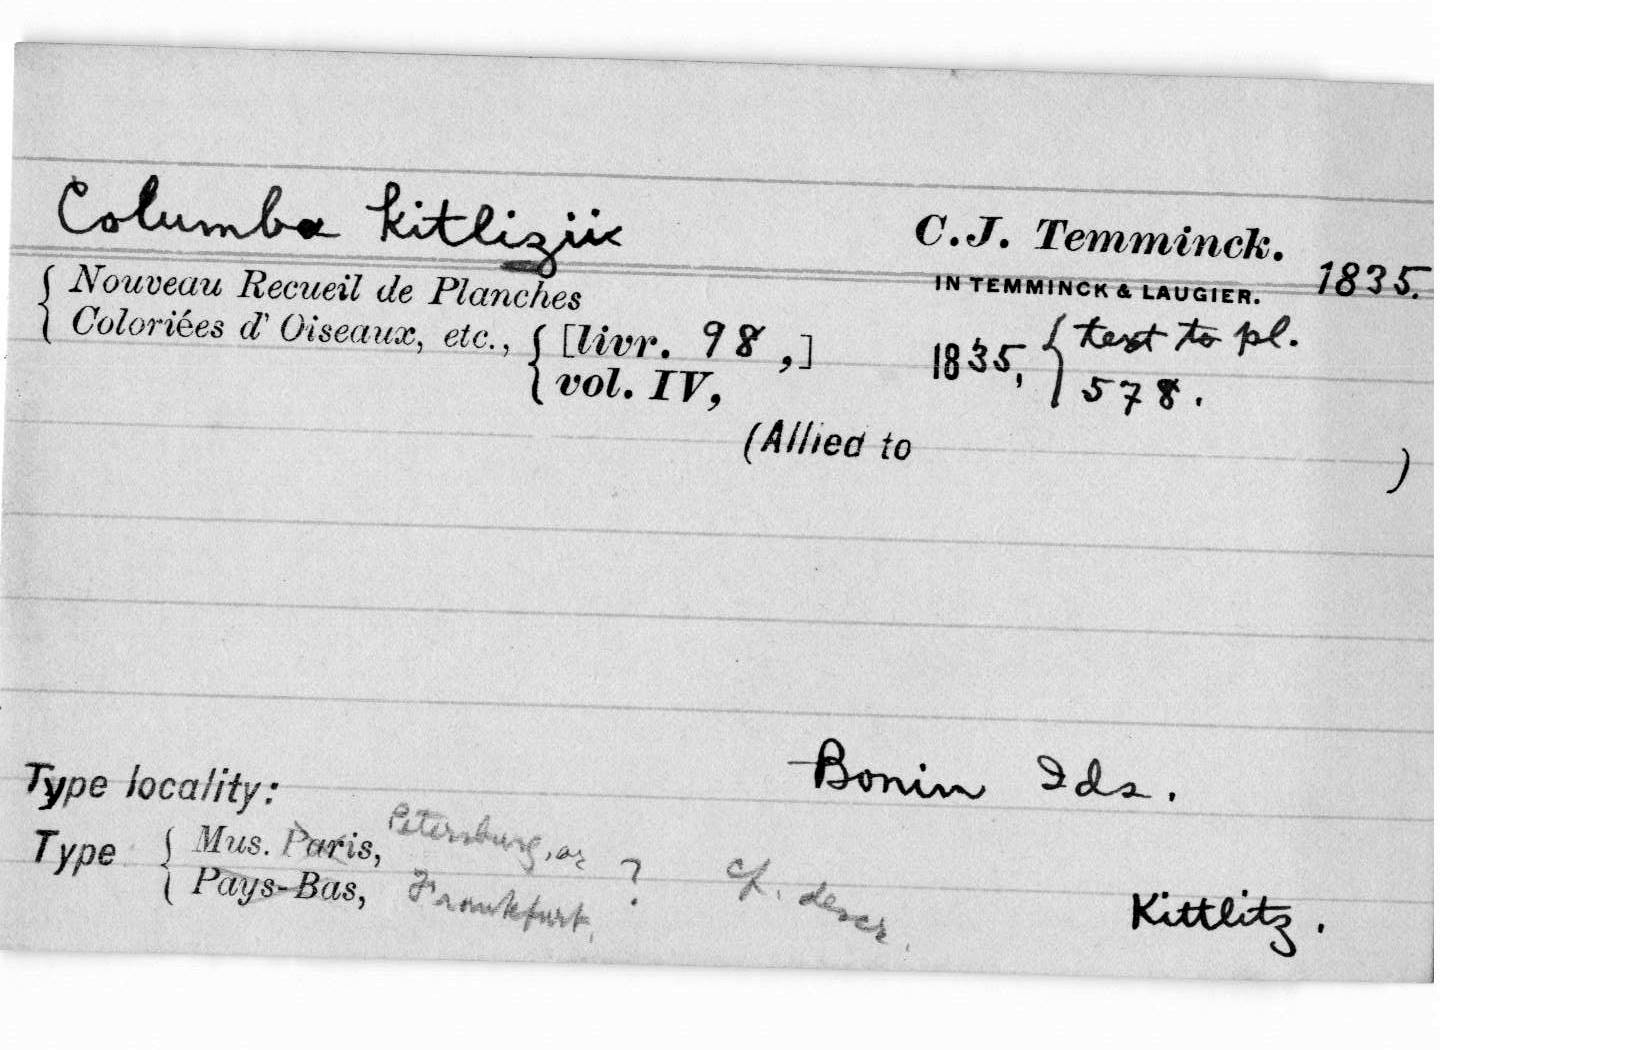 Columba kitlizii C. J. Temminck.
IN TEMMINCK & LAUGIER. 1835.
{ Nouveau Recueil de Planches
Coloriées d' Oiseaux, etc., { [livr. 98 ,] 1835, { text to pl.
vol. IV, 578.
(Allied to )
Type locality: Bonin Ids.
Type { Mus. Paris, Petersburg, or ? cf. descr.
Pays-Bas, Frankfurt. Kittlitz.